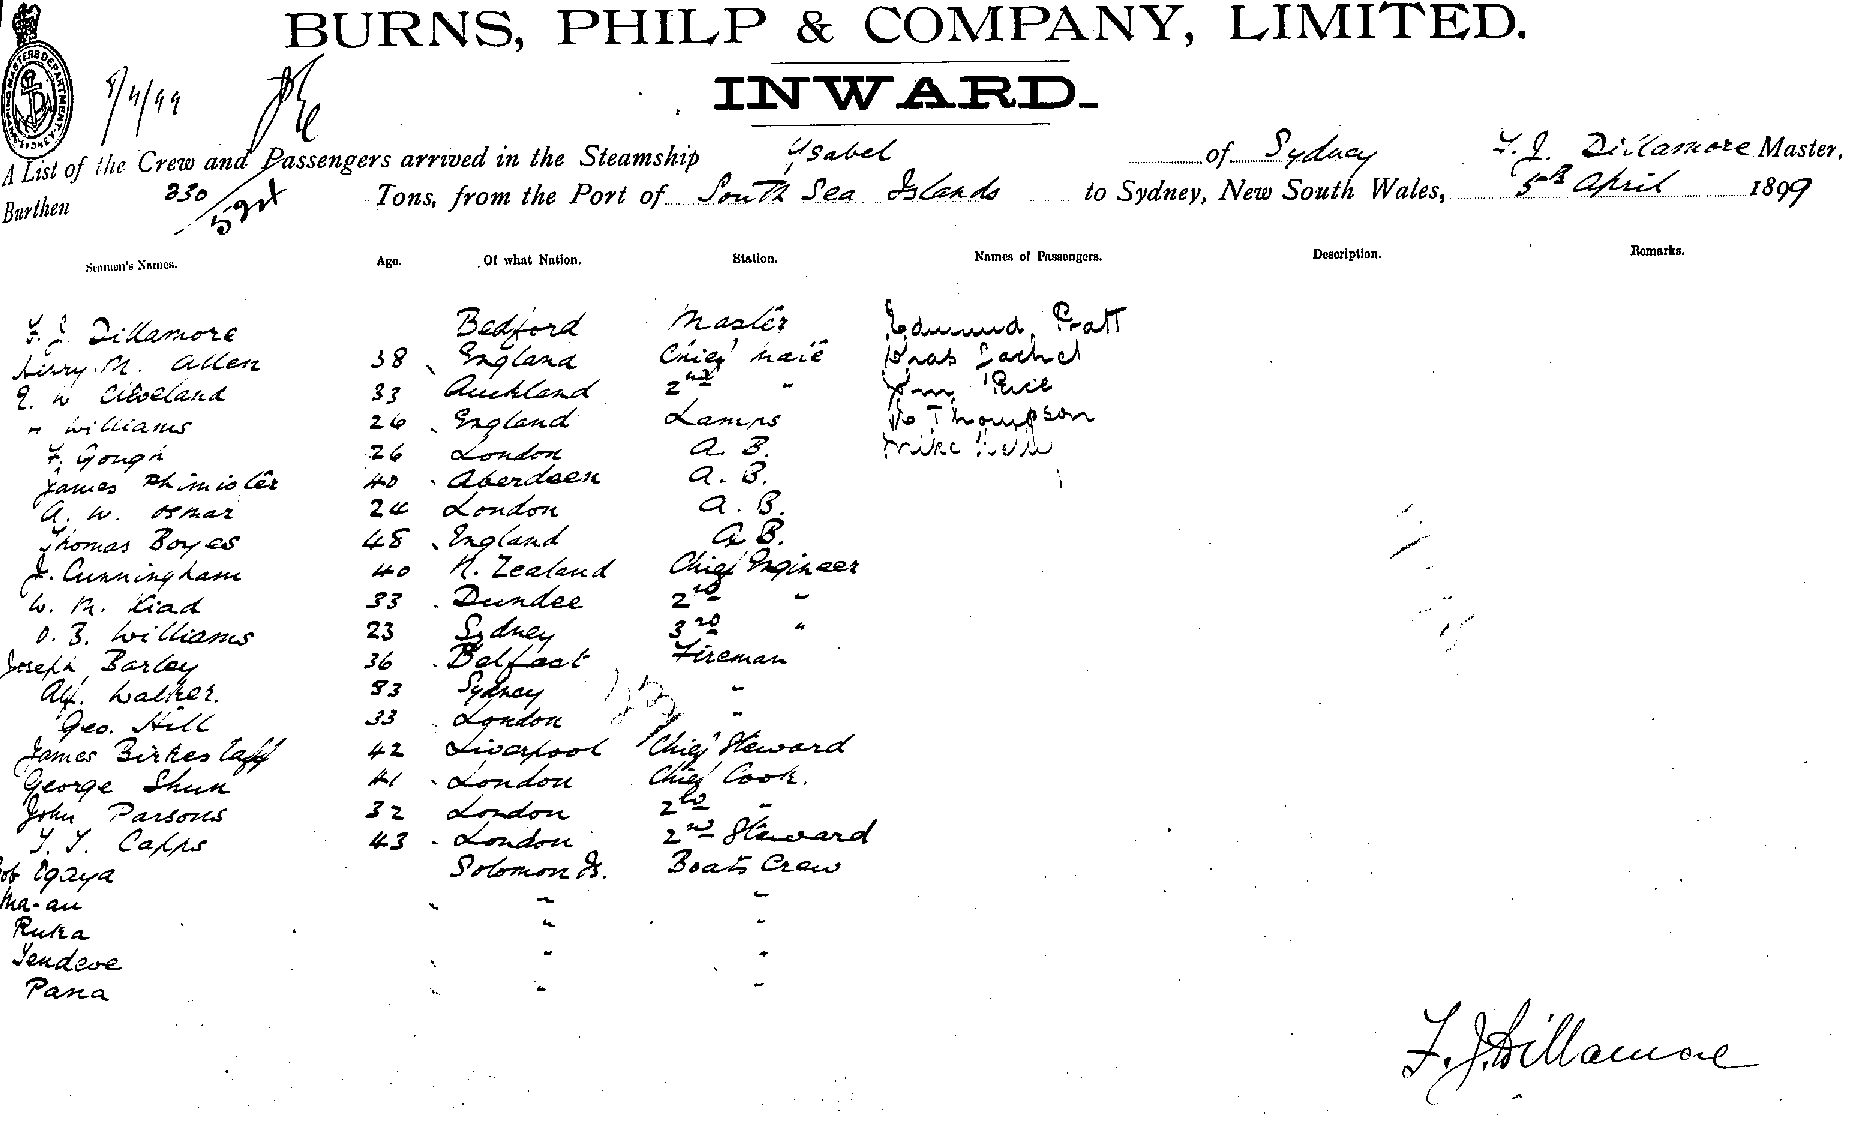 BURNS, PHILP & COMPANY, LIMITED.
INWARD.
A List of the Crew and Passengers arrived in the Steamship Ysabel of Sydney F. J. Dillamore Master,
Burthen 330 Tons, from the Port of South Sea Islands to Sydney, New South Wales, 5th April 1899
Seamen's Names. Age. Of what Nation. Station. Names of Passengers. Description. Remarks.
F. J. Dillamore Bedford Master Edmund Pratt
M. Allen 38 England Chief Mate
E. W Cleveland 33 Auckland 2nd "
" Williams 26 England Lamps Thompson
F. Gough 26 London A. B. Mike
James Phimister 40 Aberdeen A. B.
A. W. 24 London A. B.
Thomas Boyes 48 England A B.
J. Cunningham 40 N. Zealand Chief Engineer
W. M. 33 Dundee 2nd "
O. B. Williams 23 Sydney 3rd "
Joseph Barley 36 Belfast Fireman
Alf. Walker. 33 Sydney "
Geo. Hill 33 London "
James Birkestaff 42 Liverpool Chief Steward
George Shun 41 London Chief Cook.
John Parsons 32 London 2nd "
T. T. Capps 43 London 2nd Steward
Ogaya Solomon Is. Boats Crew
Ma-au " "
Ruka " "
Yendeve " "
Pana " "
F. J. Dillamore